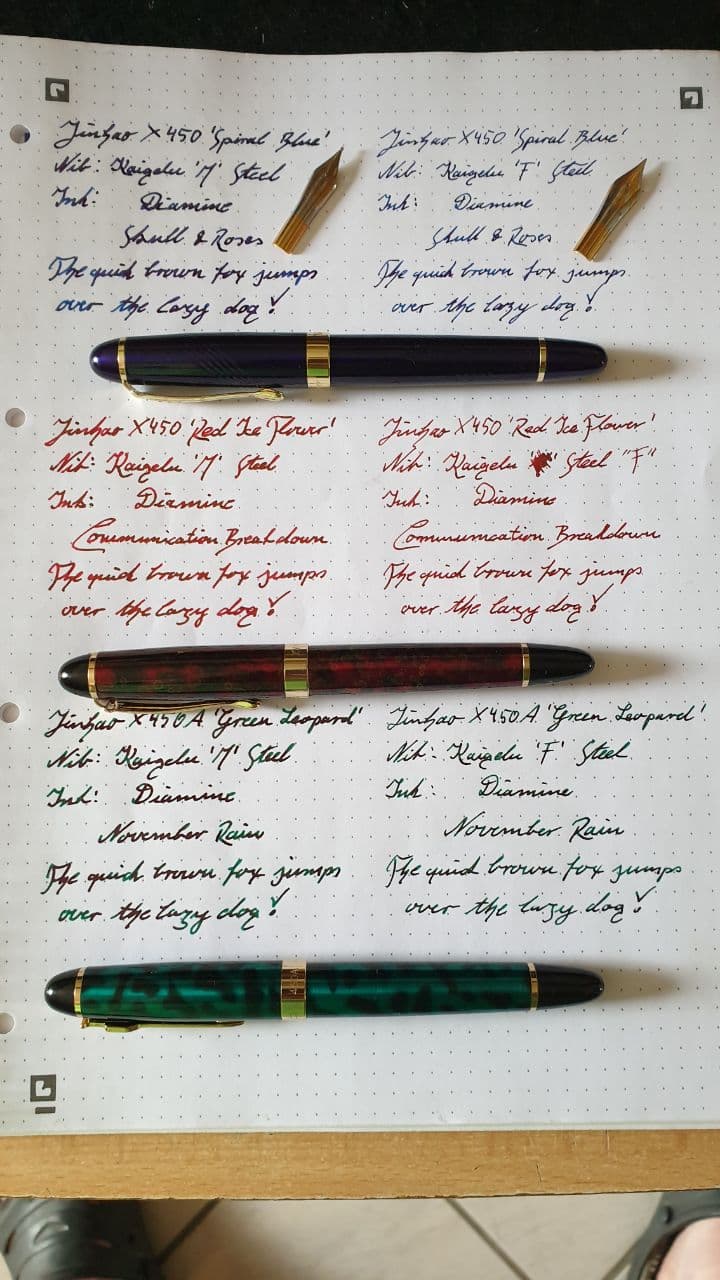 Jinhao X450 'Spiral Blue'
Nib: Kaigelu 'M' Steel
Ink: Diamine
Skull & Roses
The quick brown fox jumps
over the lazy dog!
Jinhao X450 'Spiral Blue'
Nib: Kaigelu 'F' Steel
Ink: Diamine
Skull & Roses
The quick brown fox jumps
over the lazy dog!
Jinhao X450 'Red Ice Flower'
Nib: Kaigelu 'M' Steel
Ink: Diamine
Communication Breakdown
The quick brown fox jumps
over the lazy dog!
Jinhao X450 'Red Ice Flower'
Nib: Kaigelu Steel "F"
Ink: Diamine
Communication Breakdown
The quick brown fox jumps
over the lazy dog!
Jinhao X450A 'Green Leopard'
Nib: Kaigelu 'M' Steel
Ink: Diamine
November Rain
The quick brown fox jumps
over the lazy dog!
Jinhao X450A 'Green Leopard'
Nib: Kaigelu 'F' Steel
Ink: Diamine
November Rain
The quick brown fox jumps
over the lazy dog!